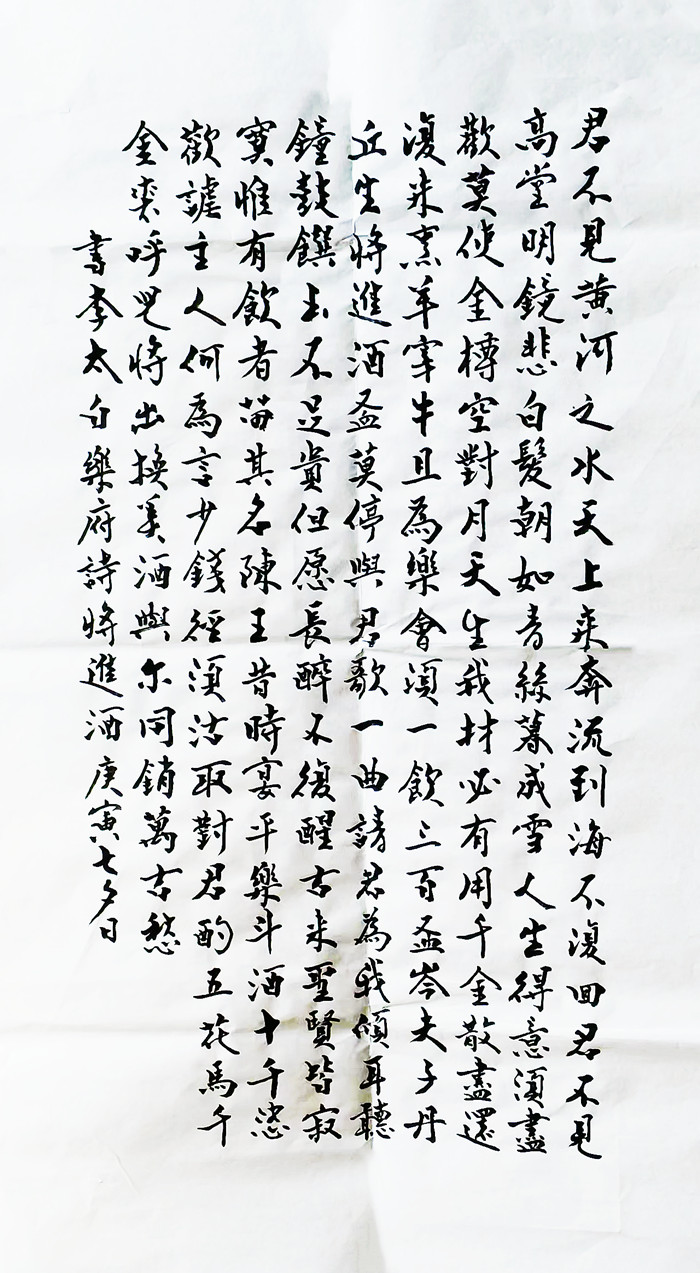 君不見黃河之水天上來奔流到海不復回君不見
高堂明鏡悲白髮朝如青絲暮成雪人生得意須盡
歡莫使金樽空對月天生我材必有用千金散盡還
復来烹羊宰牛且為樂會須一飲三百盃岑夫子丹
丘生將進酒盃莫停與君歌一曲請君為我傾耳聽
鐘鼓饌玉不足貴但愿長醉不復醒古来聖賢皆寂
寞惟有飲者留其名陳王昔時宴平樂斗酒十千恣
歡謔主人何為言少錢徑須沽取對君酌五花馬千
金裘呼兒將出換美酒與尔同銷萬古愁
書李太白樂府詩將進酒庚寅七夕日